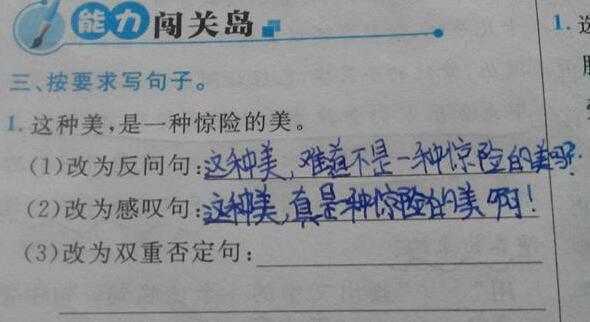 能力闯关岛
三、按要求写句子。
1. 这种美,是一种惊险的美。
(1)改为反问句:这种美,难道不是一种惊险的美吗?
(2)改为感叹句:这种美,真是一种惊险的美啊!
(3)改为双重否定句:
1.